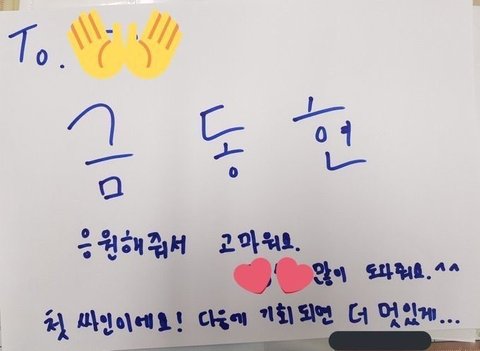 To.
금 동 현
응원해줘서 고마워요.
많이 도와줘요.^^
첫 싸인이에요! 다음에 기회되면 더 멋있게...